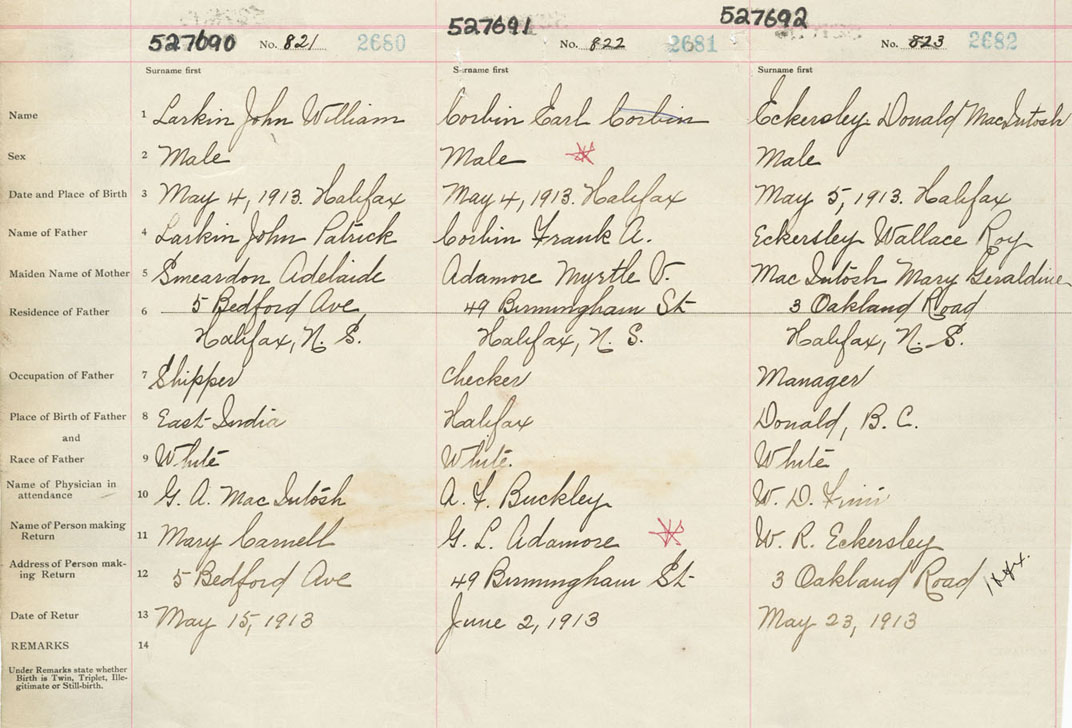 527690 No. 821 2680 527691 No. 822 2681 527692 No. 823 2682
Surname first Surname first Surname first
Name 1 Larkin John William Corbin Earl Corbin Eckersley Donald MacIntosh
Sex 2 Male Male Male
Date and Place of Birth 3 May 4, 1913. Halifax May 4, 1913. Halifax May 5, 1913. Halifax
Name of Father 4 Larkin John Patrick Corbin Frank A. Eckersley Wallace Roy
Maiden Name of Mother 5 Smeardon Adelaide Adamore Myrtle V. Mac Intosh Mary Geraldine
Residence of Father 6 5 Bedford Ave 49 Birmingham St 3 Oakland Road
Halifax, N. S. Halifax, N. S. Halifax, N. S.
Occupation of Father 7 Shipper checker Manager
Place of Birth of Father 8 East India Halifax Donald, B. C.
and
Race of Father 9 White White. White
Name of Physician in
attendance 10 G. A. Mac Intosh A. F. Buckley W. D. Finn
Name of Person making
Return 11 Mary Carnell G. L. Adamore W. R. Eckersley
Address of Person mak-
ing Return 12 5 Bedford Ave 49 Birmingham St 3 Oakland Road
Date of Retur 13 May 15, 1913 June 2, 1913 May 23, 1913
REMARKS 14
Under Remarks state whether
Birth is Twin, Triplet, Ille-
gitimate or Still-birth.